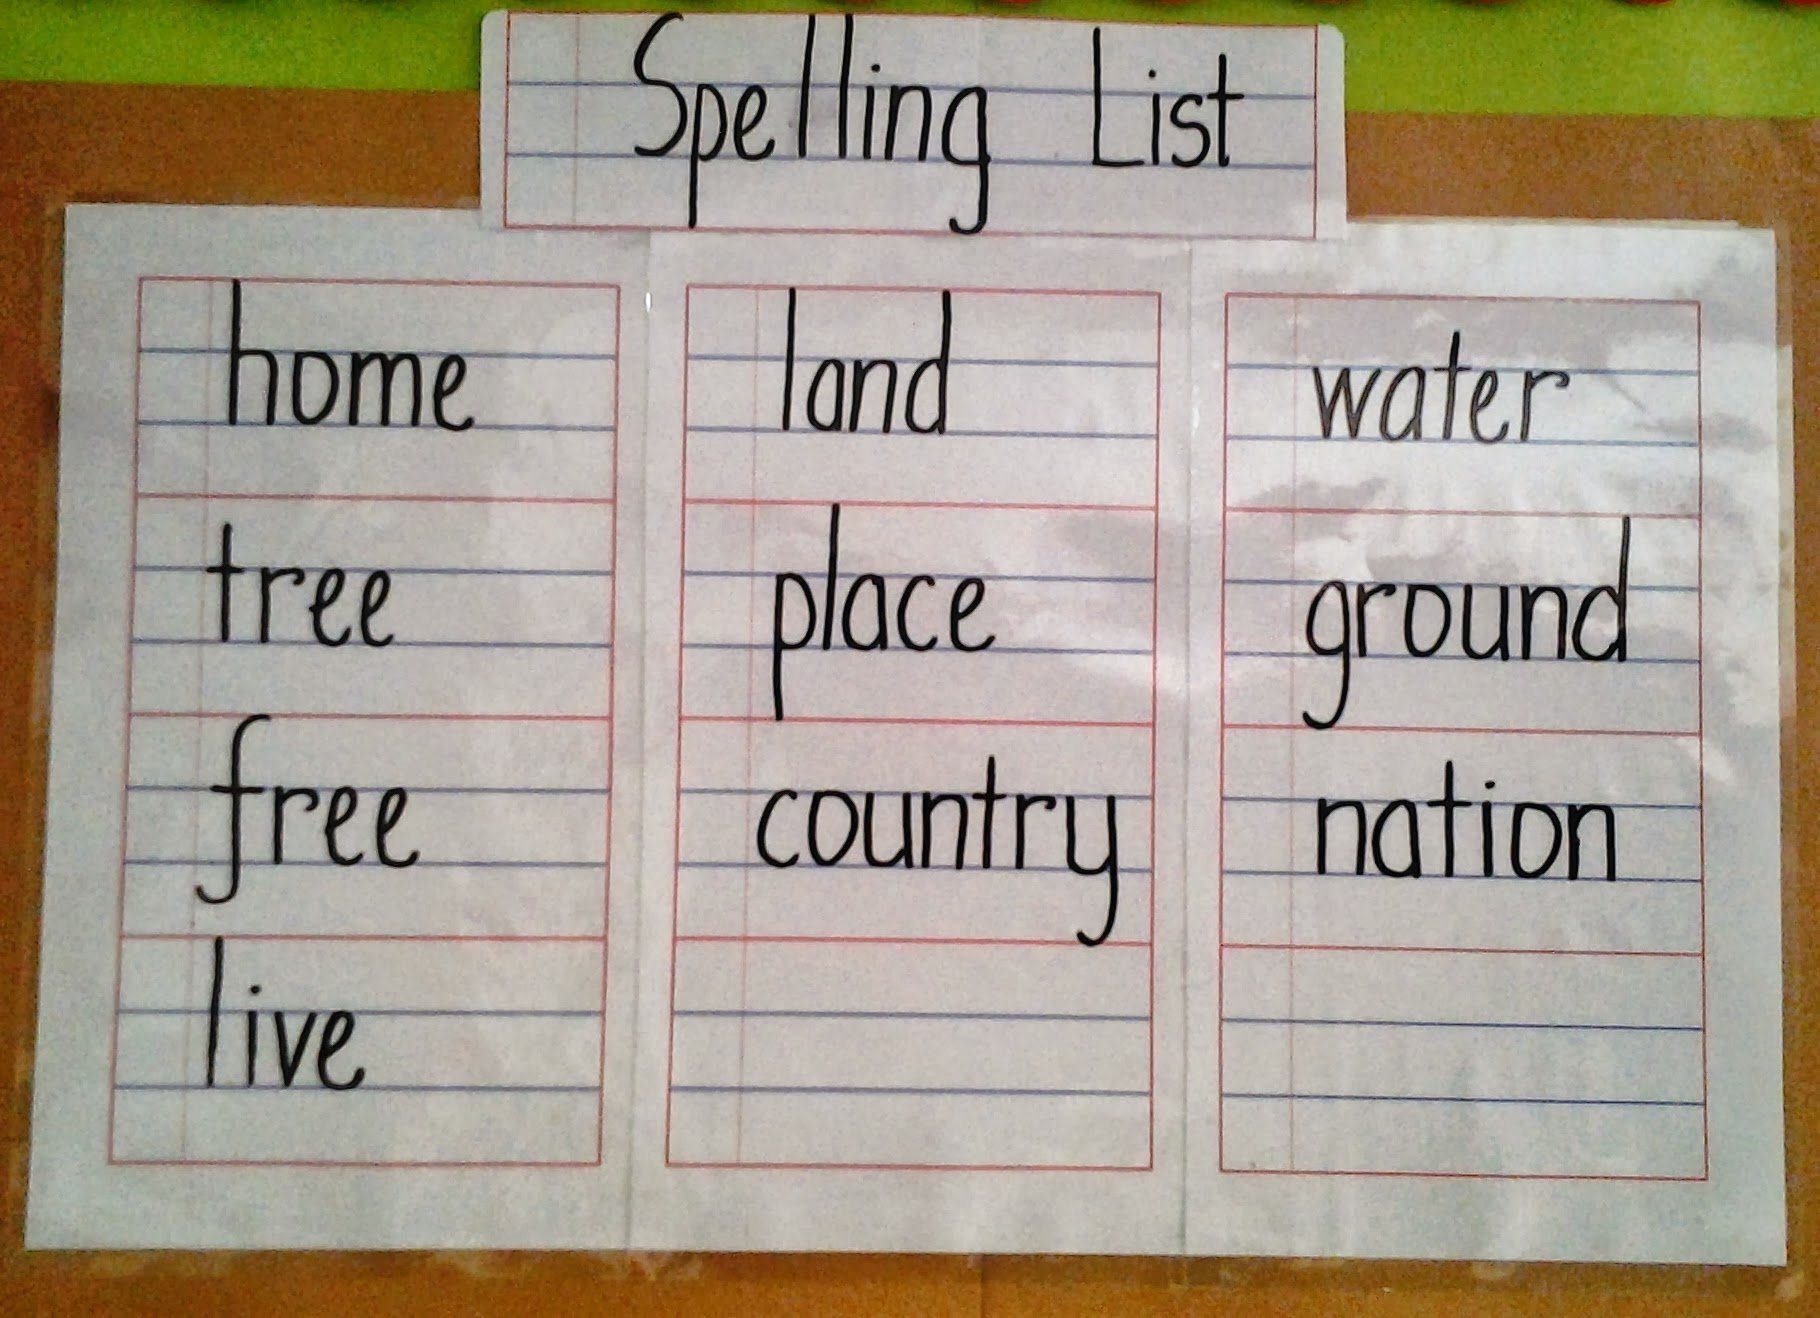 Spelling List
home land water
tree place ground
free country nation
live